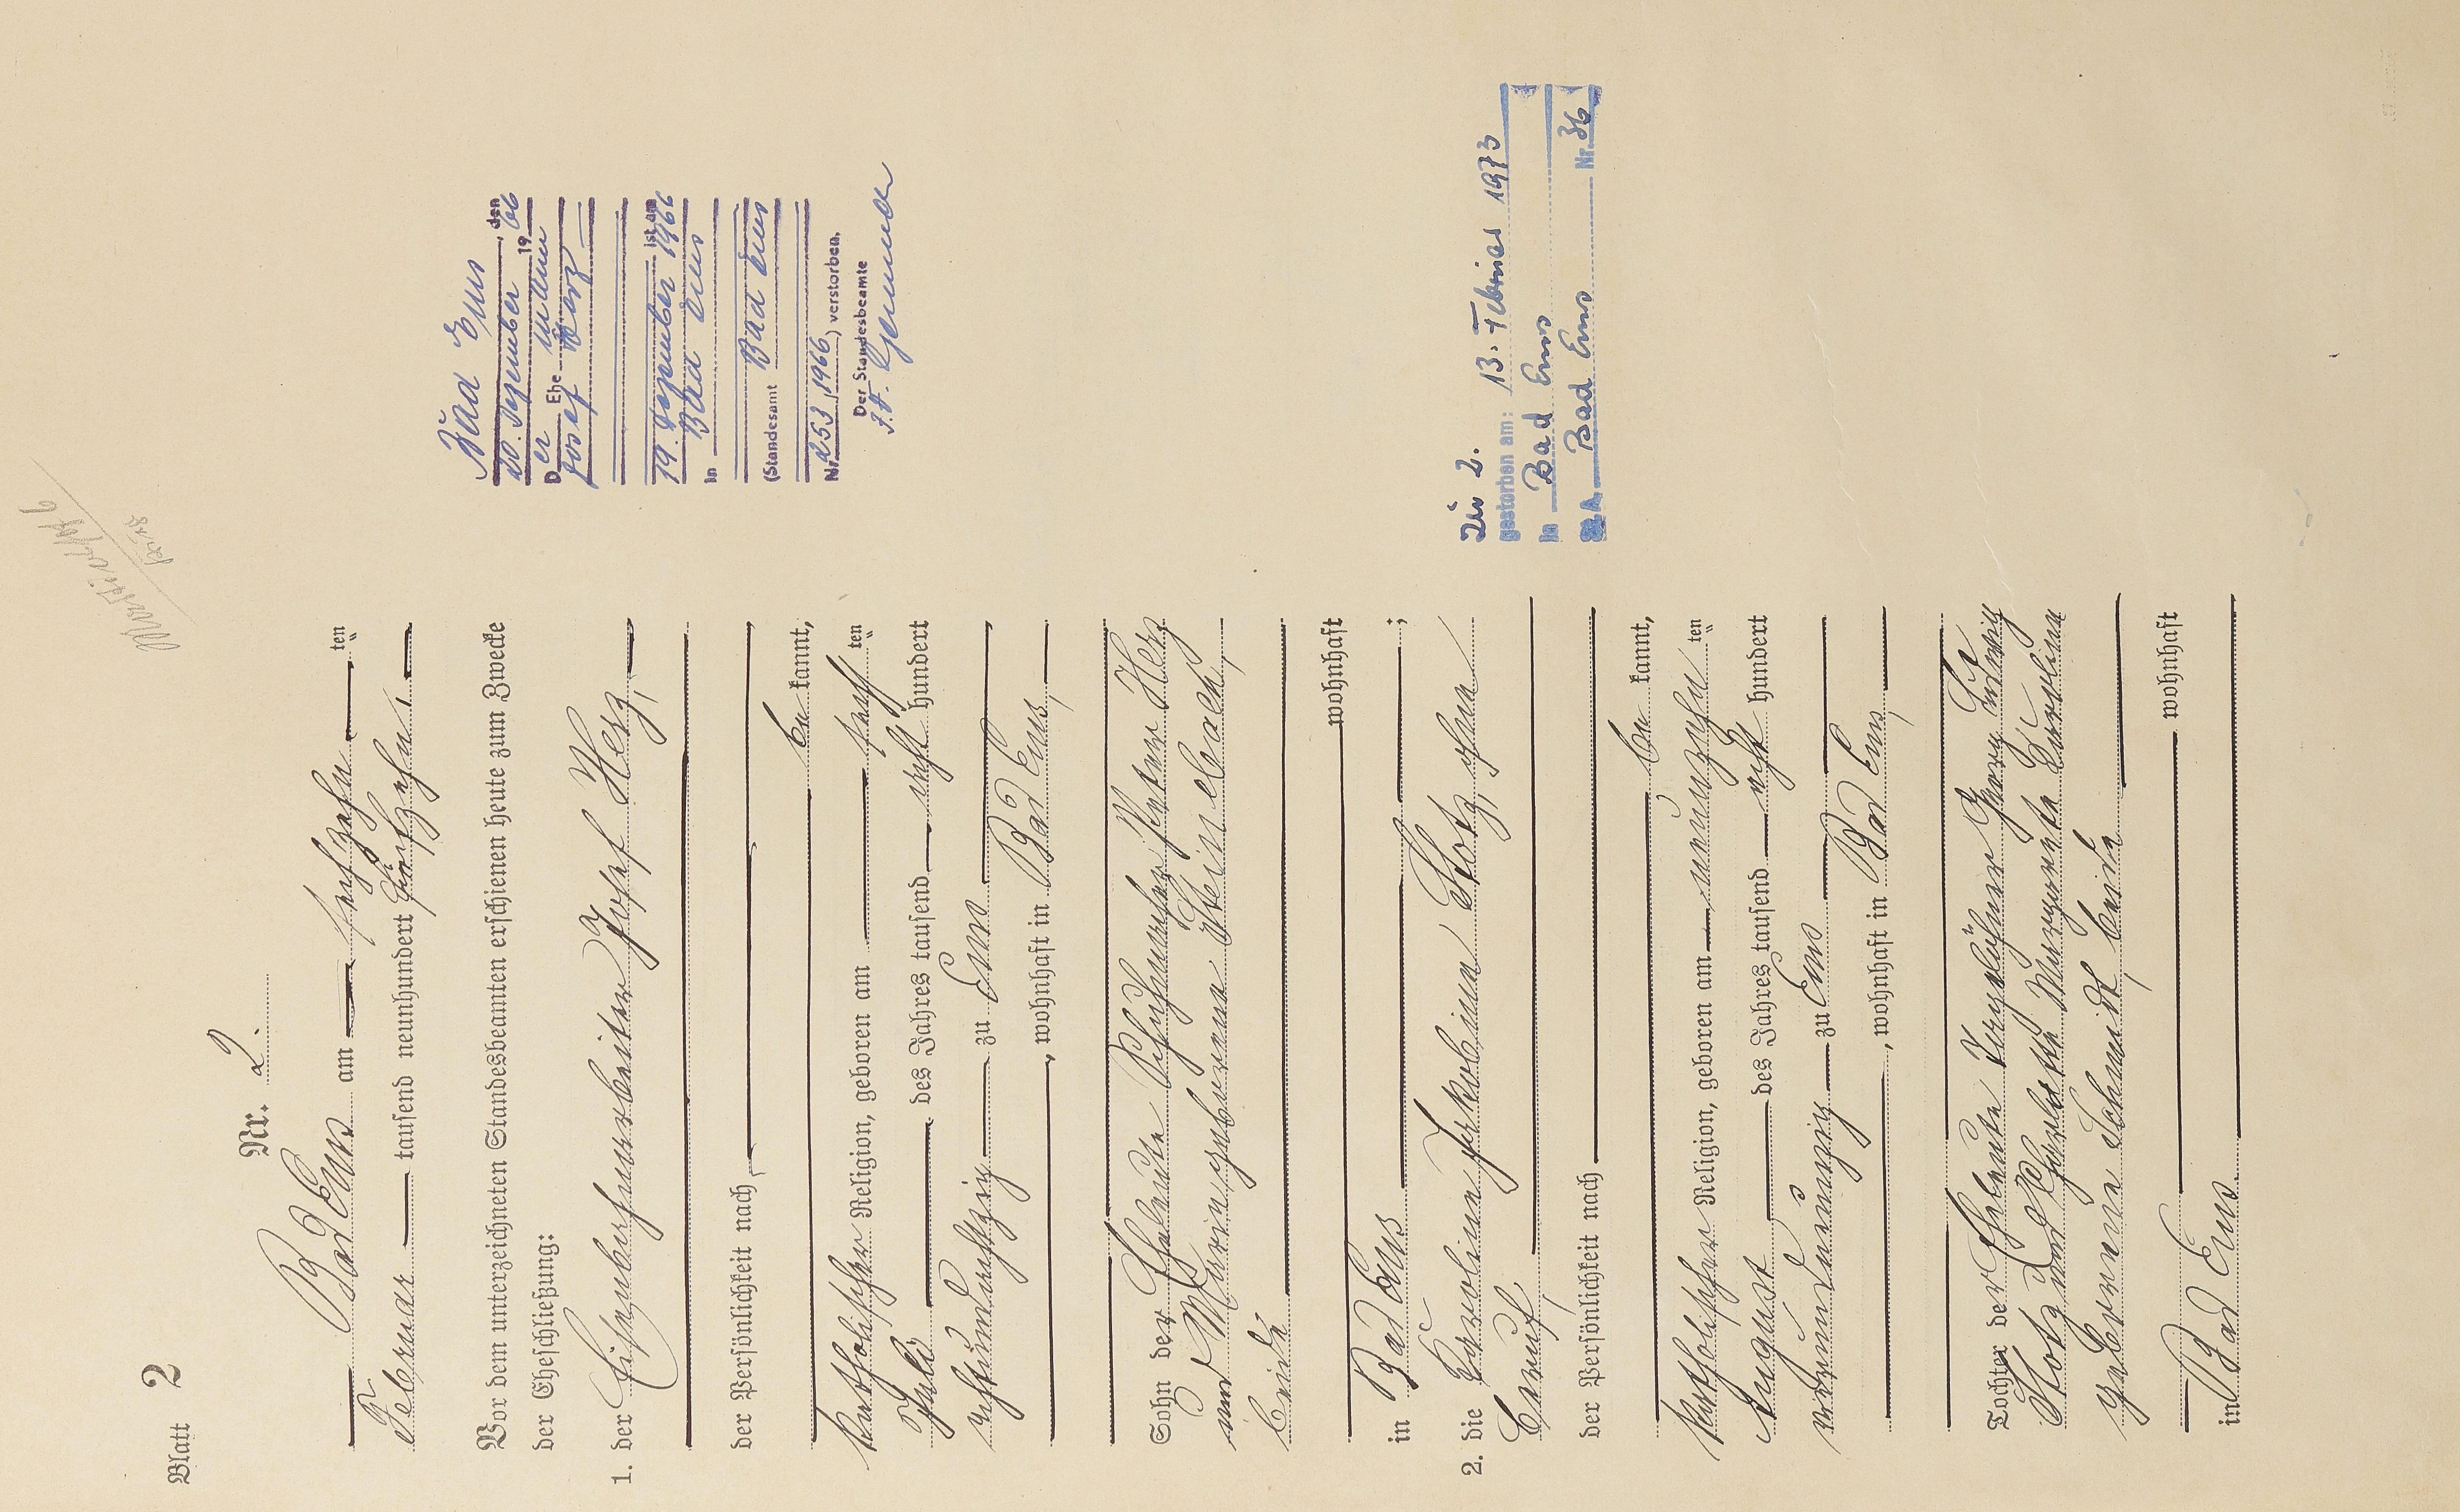 Blatt 2
Nr. 2.
Bad Ems am sechzehn ten
Februar tausend neunhundert fünfzehn,
Vor dem unterzeichneten Standesbeamten erschienen heute zum Zwecke
der Eheschließung:
1. der Eisenbahnarbeiter Josef Herz,
der Persönlichkeit nach
be kannt,
katholischer Religion, geboren am ten
Juli des Jahres tausend acht hundert
achtundachtzig zu Ems
, wohnhaft in Bad Ems,
Sohn der Eheleute Schuhmacher Peter Herz
und Maria, geborene Steinebach,
beide
wohnhaft
in Bad Ems ;
2. die Karoline Jakobina Stotz, ohne
Beruf,
der Persönlichkeit nach
be kannt,
katholischer Religion, geboren am neunzehn ten
August des Jahres tausend acht hundert
neunundneunzig zu Ems
, wohnhaft in Bad Ems,
Tochter der Eheleute Tagelöhner Georg Ludwig
Stotz und Charlotte Margareta Karolina
geborene Schmidt, beide
wohnhaft
in Bad Ems.
Bad Ems, den
20. Dezember 1966
Der Ehemann
Josef Herz
ist am
19. Dezember 1966
in Bad Ems
(Standesamt Bad Ems
Nr. 253/1966) verstorben.
Der Standesbeamte
I.V.
Zu 2.
gestorben am: 13. Februar 1973
in Bad Ems
St. A. Bad Ems Nr. 36